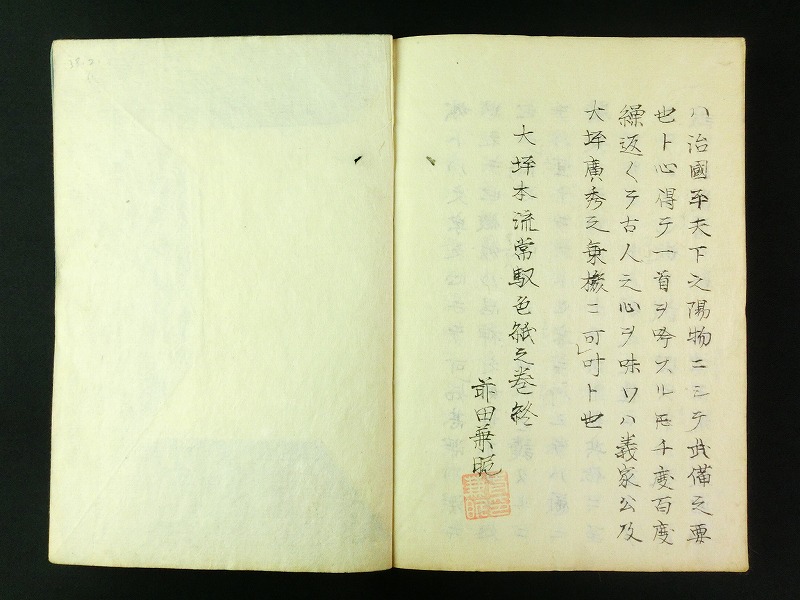 ハ治國平天下之陽物ニシテ武備之要
也ト心得テ一首ヲ吟スルモ千度百度
繰返〱テ古人之心ヲ味ワハ義家公及
大坪廣秀之乗機ニ可叶ト也
大坪本流常馭色紙之巻終
前田葉